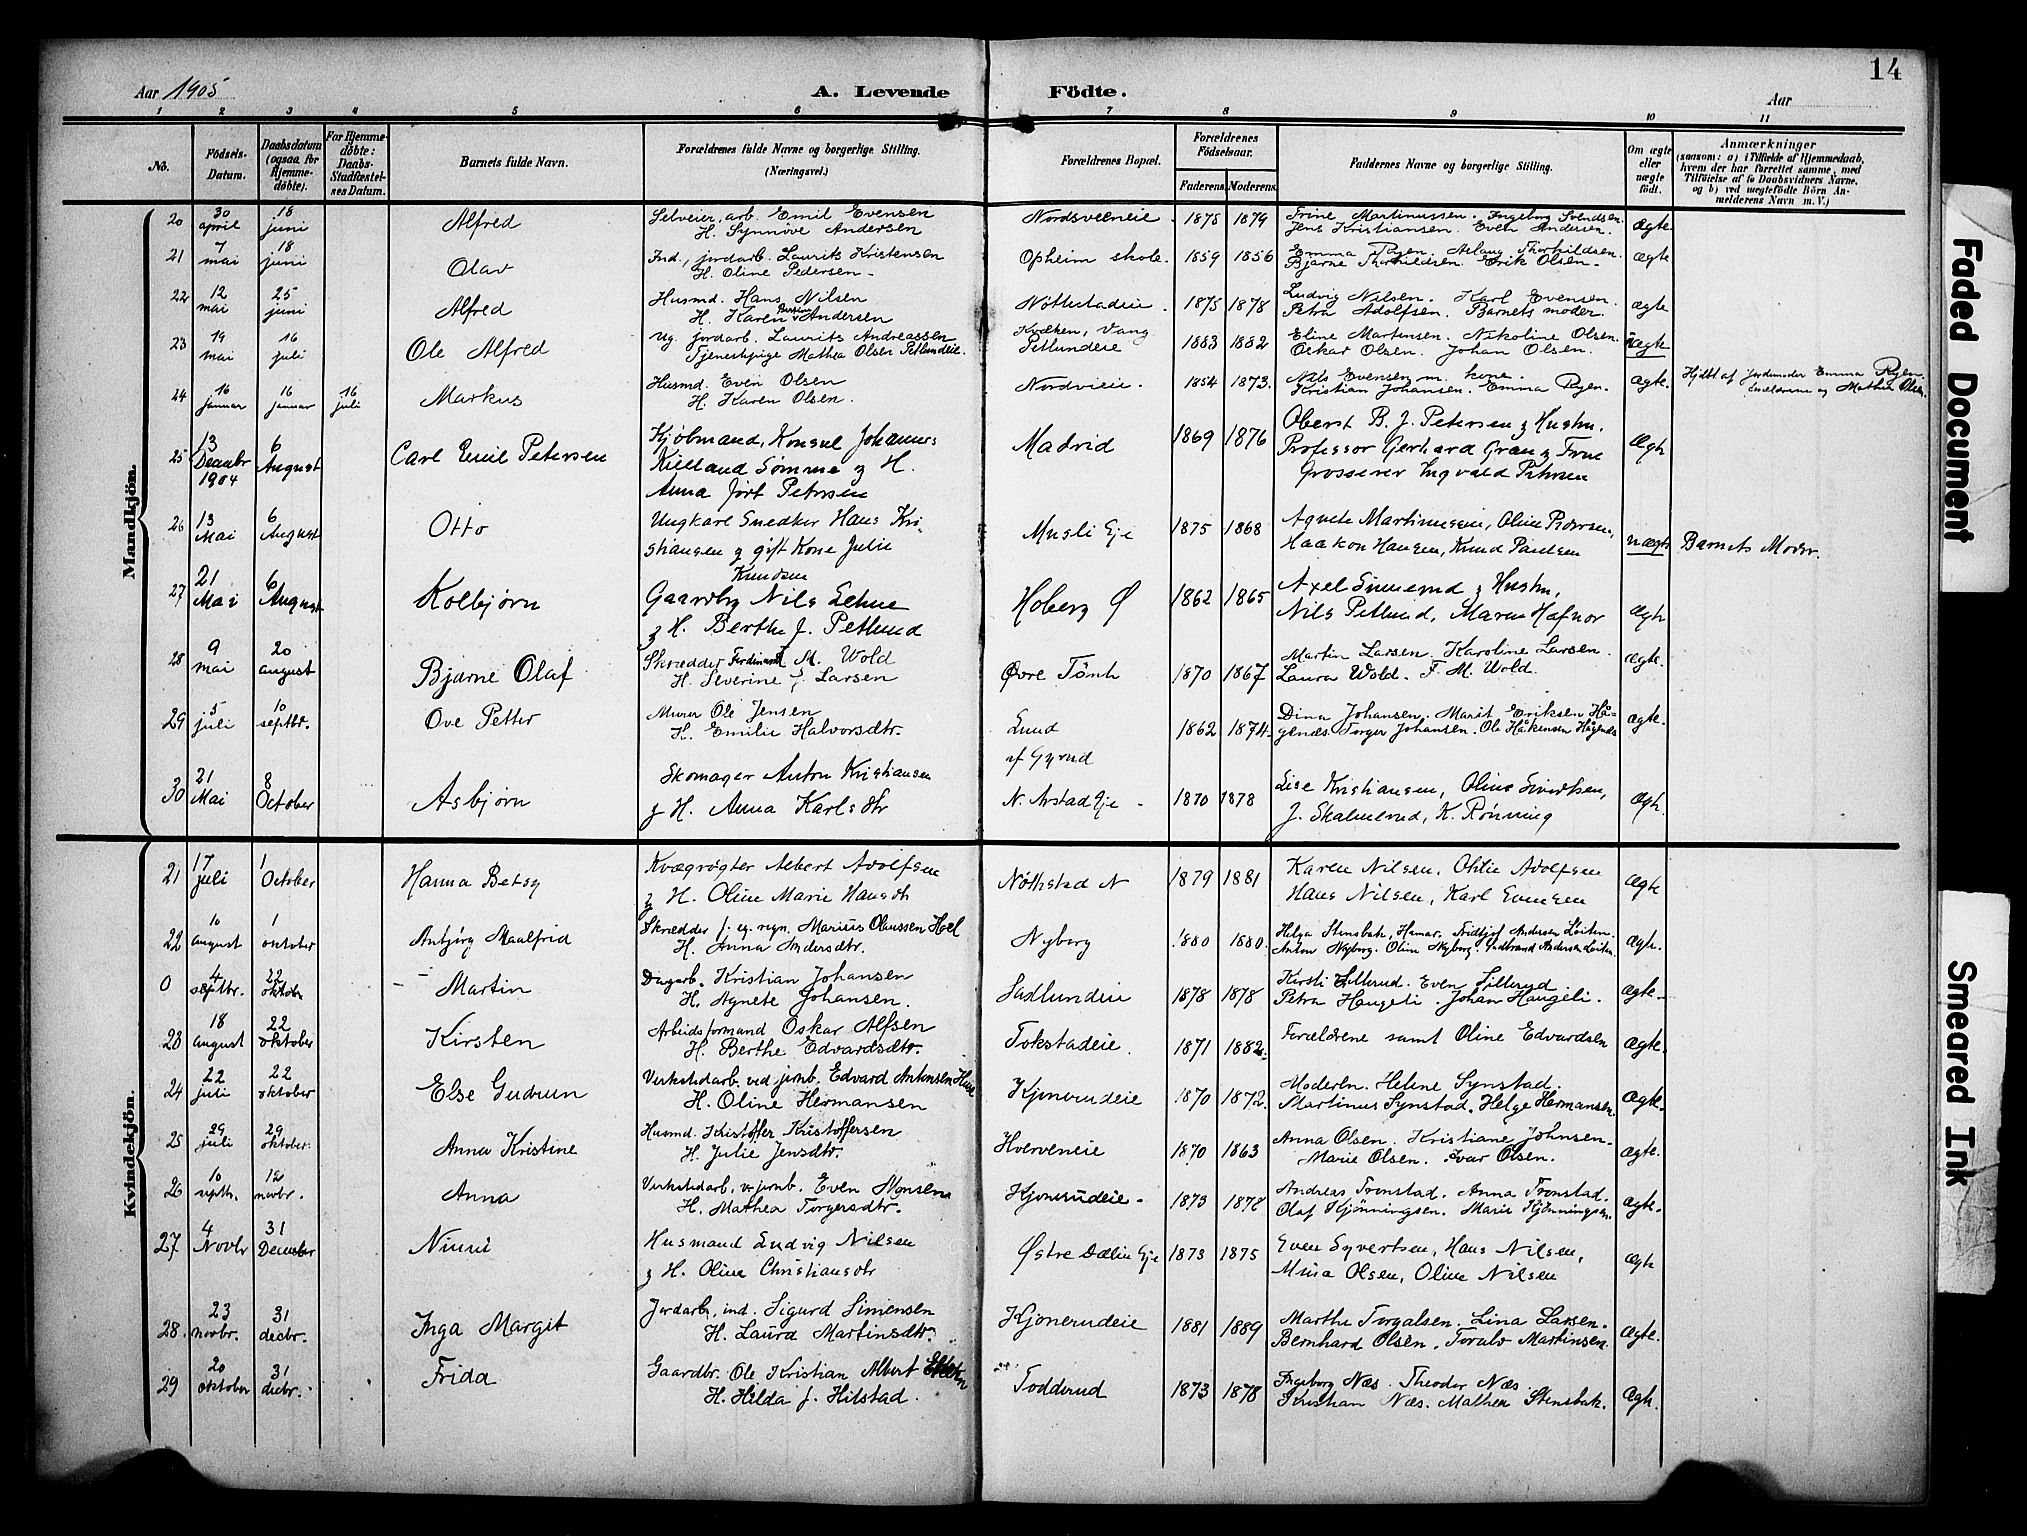 14
Aar 1905
A. Levende Födte.
Aar
1 2 3 4 5 6 7 8 9 10 11
No.
Födsels-Datum.
Daabsdatum (ogsaa for Hjemmedöbte).
For Hjemmedöbte: Daabs-Stadfæstelses Datum.
Barnets fulde Navn.
Forældrenes fulde Navne og borgerlige Stilling.
(Næringsvei.)
Forældrenes Bopæl.
Forældrenes Födselsaar.
Faderens. Moderens.
Faddernes Navne og borgerlige Stilling.
Om ægte eller uægte födt.
Anmærkninger
(saasom: a) i Tilfælde af Hjemmedaab, hvem der har forrettet samme, med Tilföielse af to Daabsvidners Navne, og b) ved uægtefödte Börn Anmelderens Navn m. V.)
Mandkjön.
20 30 april 18 juni Alfred Selveier, arb. Emil Evensen
H. Synnøve Andersen Nordsveeneie. 1875 1879 Trine Martinussen. Ingeborg Svendsen.
Jens Kristiansen. Even Andersen. Ægte
21 7 mai 18 juni Olav Ind., jordarb. Laurits Kristensen
H. Oline Pedersen Opheim skole. 1859 1856 Emma Rygen. Aslaug Thorhildsen.
Bjarne Thorhildsen. Erik Olsen. ægte
22 12 mai 25 juni Alfred Husmd. Hans Nilsen
H. Karen Andersen Nøttestadeie 1875 1878 Ludvig Nilsen. Karl Evensen.
Petra Adolfsen. Barnets moder. ægte
23 19 mai 16 juli Ole Alfred Ug. jordarb. Laurits Andreassen
Tjenestepige Mathea Olsen Petlundeie. Kvæken, Vang
Petlundeie 1883 1882 Eline Martinsen. Nikoline Olsen.
Oskar Olsen. Johan Olsen. uægte
24 10 januar 16 januar 16 juli Markus Husmd. Even Olsen
H. Karen Olsen. Nordvieie. 1854 1873. Nils Evensen m. kone.
Kristian Johansen. Emma Rygen. ægte. Hjdbt af jordmoder Emma Rygen.
Forældrene og Mathea Olsen.
25 13 Decembr 1904 6 August Carl Emil Petersen Kjøbmand, Konsul Johannes
Kielland Sømme og H.
Anna født Petersen Madrid 1869 1876 Oberst B. J. Petersen & Hustru.
Professor Gerhard Gran & Frue
Grosserer Ingvald Petersen Ægte
26 13 Mai 6 August Otto Ungkarl Snedker Hans Kri-
stiansen & gift Kone Julie
Knudsen Musli Eje 1875 1868 Agnete Martinusen, Oline Pedersen,
Haakon Hansen, Knud Paulsen uægte Barnets Moder.
27 21 Mai 6 August Kolbjørn Gaardbr Nils Lehne
& H. Berthe f. Petlund Hoberg Ø 1862 1865 Axel Simerud & Hustru,
Nils Petlund, Maren Hafnor Ægte
28 9 mai 20 august Bjarne Olaf Skrædder Ferdinand M. Wold
H. Severine f. Larsen Øvre Tømte 1870 1867 Martin Larsen. Karoline Larsen.
Laura Wold. F. M. Wold. Ægte.
29 5 juli 10 septbr. Ove Petter Murer Ole Jensen
H. Emilie Halvorsdtr. Lund
af Gyrud 1862 1874. Dina Johansen. Marit Eriksen Hå-
genæs. Torger Johansen. Ole Håkensen Hågenæs Ægte.
30 21 Mai 8 October Asbjørn Skomager Anton Kristiansen
& H. Anna Karlsdtr N. Arstad Eje 1870 1878 Lise Kristiansen, Oline Sivertsen,
J. Skalmerud, K. Rønning Ægte.
Kvindekjön.
21 17 juli 1 October Hanna Betsy Kvægrøgter Albert Adolfsen
& H. Oline Marie Hansdtr Nøttestad N 1879 1881 Karen Nilsen, Othilie Adolfsen
Hans Nilsen, Karl Evensen Ægte
22 10 august 1 oktober Anbjørg Maalfrid Skrædder f. eg. regn. Marius Olaussen Hoel
H. Anna Andersdtr. Nyborg 1880 1880. Helga Stensbak, Hamar. Fridtjof Andersen Løiten.
Anton Nyborg. Oline Nyborg. Gudbrand Andersen Løiten. Ægte.
0 4 septbr. 22 oktober Martin Dagarb. Kristian Johansen
H. Agnete Johansen. Sadlundeie 1878 1878 Kirsti Lillerud. Even Lillerud
Petra Haugeli. Johan Haugeli. Ægte.
23 18 august 22 oktober Kirsten Arbeidsformand Oskar Alfsen
H. Berthe Edvardsdtr. Tokstadeie. 1871 1882. Forældrene samt Oline Edvardsen Ægte.
24 22 juli 22 oktober Else Gudrun Verkstedarb. ved jernb. Edvard Antonsen
H. Oline Hermansen Kjonerudeie 1870 1872. Moderen. Helene Synstad.
Martinus Synstad. Helge Hermansen. Ægte.
25 29 juli 29 oktober. Anna Kristine Husmd. Kristoffer Kristoffersen
H. Julie Jensdtr. Hverveneie 1870 1863 Anna Olsen. Kristiane Johnsen.
Marie Olsen. Ivar Olsen. Ægte.
26 10 septbr. 12 novbr. Anna Verkstedarb. v. jernb. Even Monsen
H. Mathea Torgersdtr. Kjonerudeie. 1873 1872 Andreas Tronstad. Anna Tronstad.
Olaf Kjønningsen. Marie Kjønningsen. Ægte.
27 4 Novbr 31 December Ninni Husmand Ludvig Nilsen
& H. Oline Christiansdtr Østre Dælin Eje 1873 1875 Even Syvertsen, Hans Nilsen,
Mina Olsen, Oline Nilsen Ægte
28. 23 novbr. 31 decbr. Inga Margit Jordarb. ind. Sigurd Simensen
H. Laura Martinsdtr. Kjonerudeie 1881 1889 Marthe Torgalsen. Lina Larsen.
Bernhard Olsen. Torulv Martinsen. Ægte.
29 20 oktober 31 decbr. Frida Gaardbr. Ole Kristian Albert
H. Hilda f. Hilstad. Todderud 1873 1878 Ingeborg Næs. Theodor Næs.
Kristian Næs. Mathea Stensbak. Ægte.
Faded Document
Smeared Ink